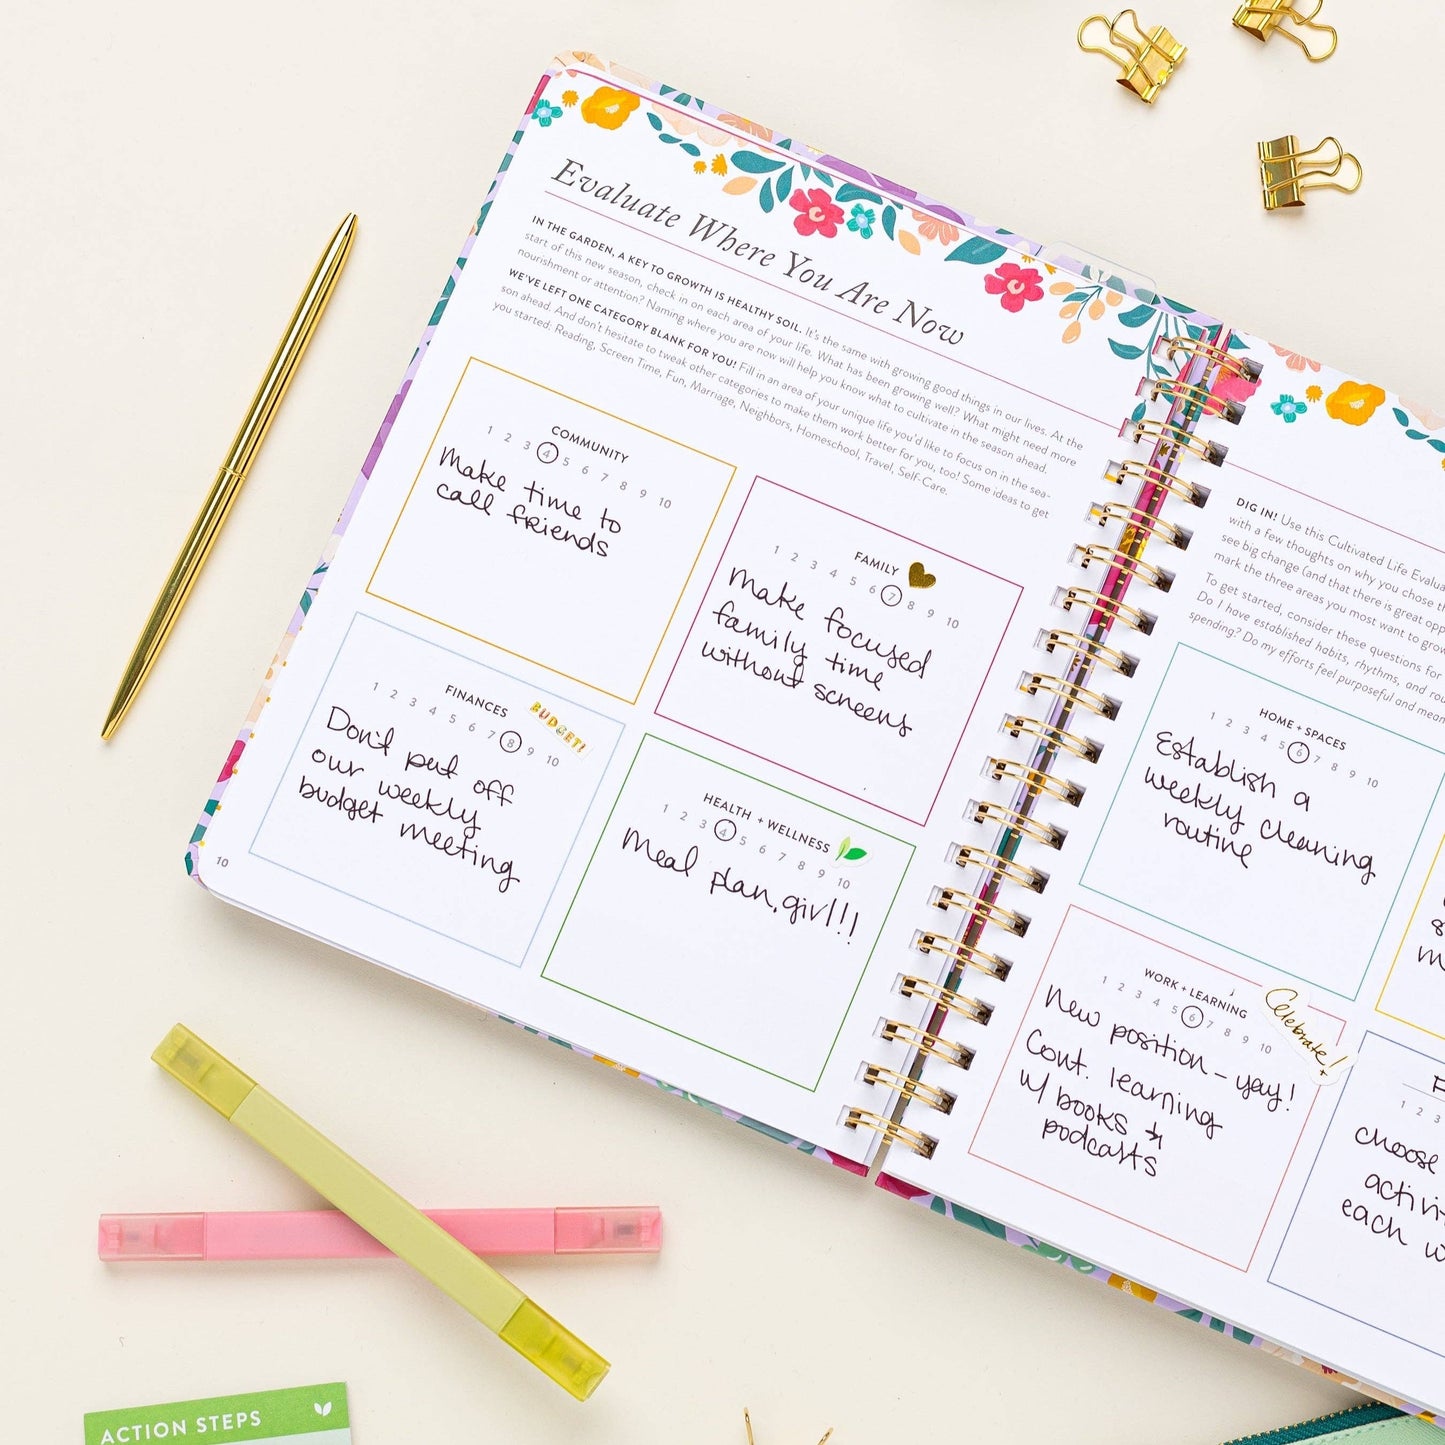 Evaluate Where You Are Now
IN THE GARDEN, A KEY TO GROWTH IS HEALTHY SOIL. It's the same with growing good things in our lives. At the
start of this new season, check in on each area of your life. What has been growing well? What might need more
nourishment or attention? Naming where you are now will help you know what to cultivate in the season ahead.
WE'VE LEFT ONE CATEGORY BLANK FOR YOU! Fill in an area of your unique life you'd like to focus on in the sea-
son ahead. And don't hesitate to tweak other categories to make them work better for you, too! Some ideas to get
you started: Reading, Screen Time, Fun, Marriage, Neighbors, Homeschool, Travel, Self-Care.
COMMUNITY
1 2 3 4 5 6 7 8 9 10
Make time to
call friends
FAMILY
1 2 3 4 5 6 7 8 9 10
Make focused
family time
without screens
FINANCES
BUDGET!
1 2 3 4 5 6 7 8 9 10
Don't put off
our weekly
budget meeting
HEALTH + WELLNESS
1 2 3 4 5 6 7 8 9 10
Meal plan, girl!!!
10
DIG IN! Use this Cultivated Life Evalua
with a few thoughts on why you chose th
see big change (and that there is great opp
mark the three areas you most want to grow
To get started, consider these questions for
Do I have established habits, rhythms, and rou
spending? Do my efforts feel purposeful and mean
HOME + SPACES
1 2 3 4 5 6 7 8 9 10
Establish a
weekly cleaning
routine
WORK + LEARNING
1 2 3 4 5 6 7 8 9 10
Celebrate!
New position - yay!
Cont. learning
w/ books &
podcasts
1 2 3
choose
activi
each w
ACTION STEPS